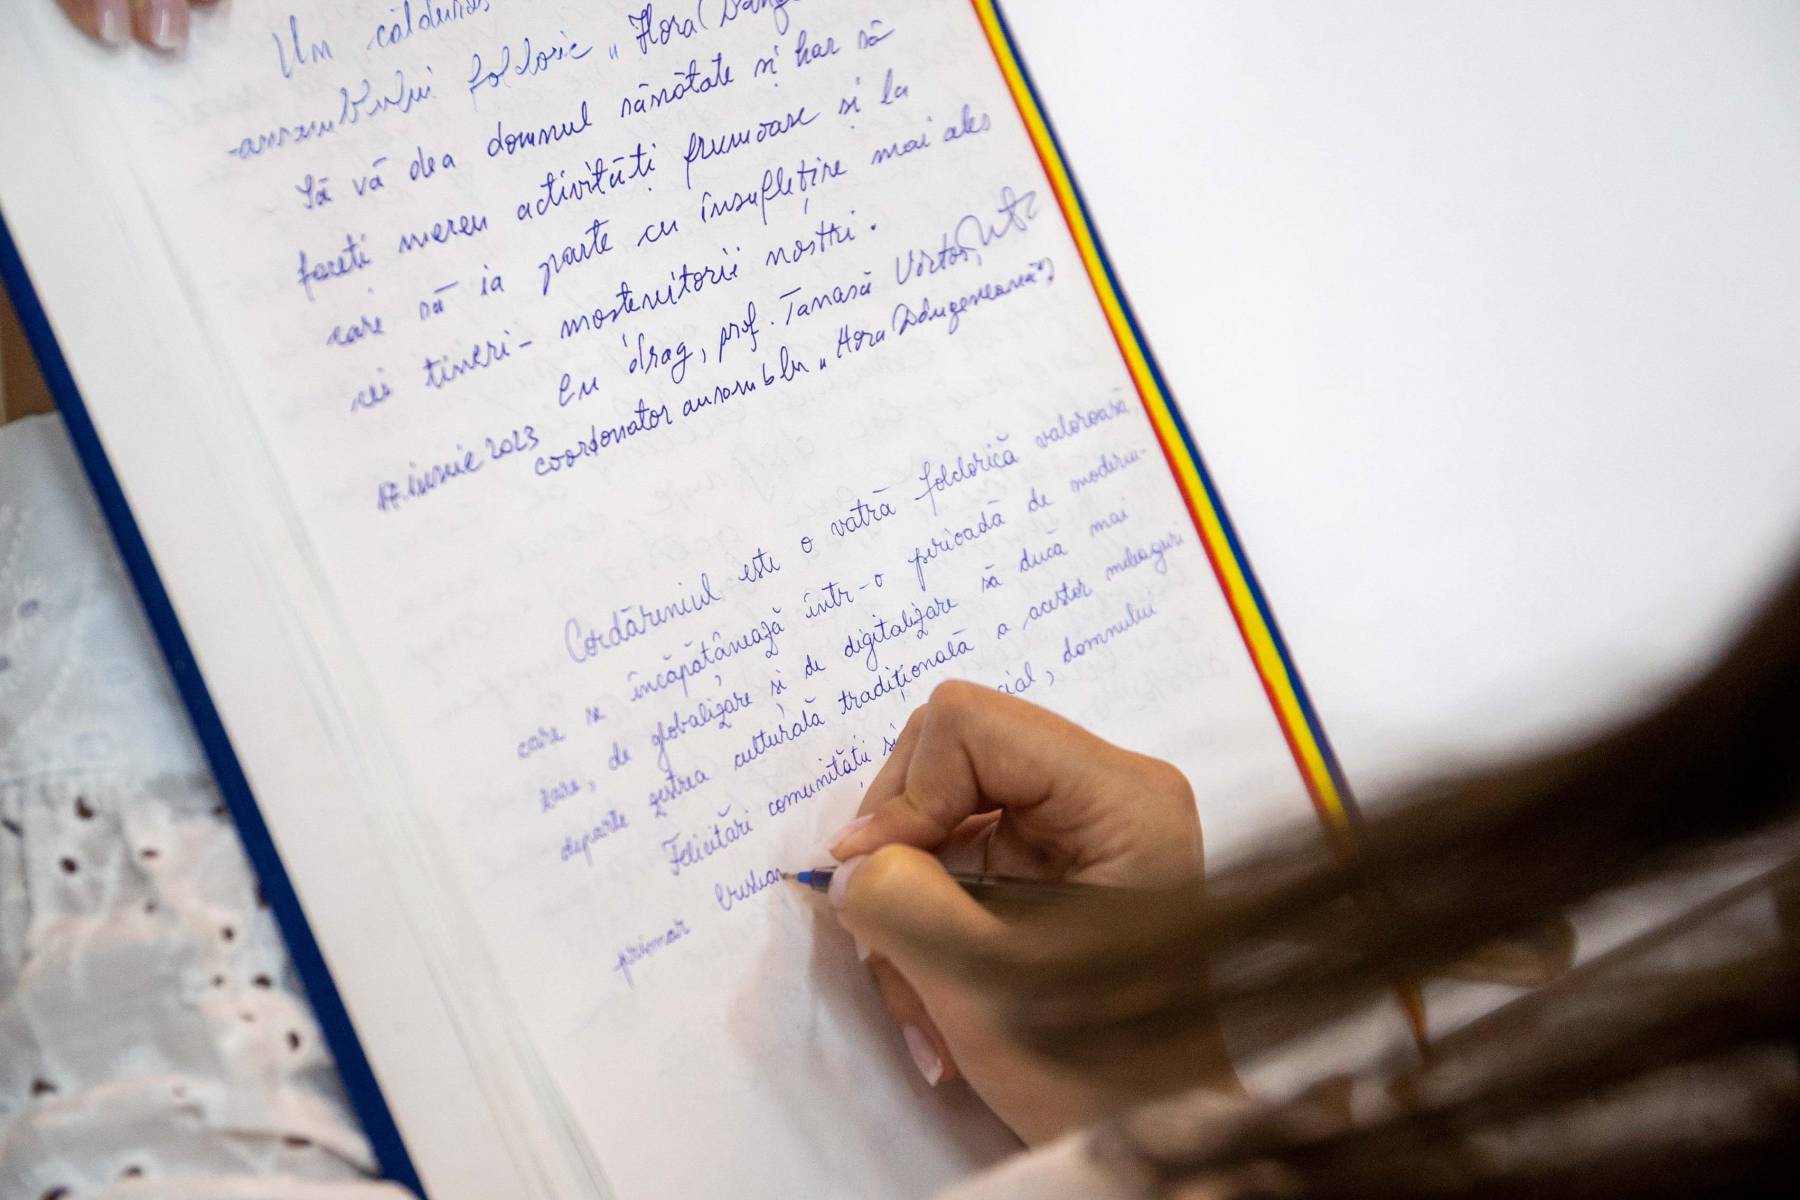 Un călduros
ansamblului folcloric „Hora
Să vă dea domnul sănătate și har să
faceti mereu activități frumoase și la
care să ia parte cu însuflețire mai ales
cei tineri - mostenitorii nostri.
Cu drag, prof. Tanasă Victor,
17 iunie 2023 coordonator ansamblu „Hora Dângeneană"
Cordăreniul este o vatră folclorică valoroasă,
care se încăpățânează într-o perioadă de moderni-
zare, de globalizare și de digitalizare să ducă mai
departe zestrea culturală tradițională a acestor meleaguri
Felicitări comunității și cial, domnului
primar